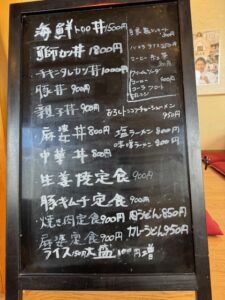 海鮮トロロ丼1500円
鰤カツ丼1800円
チキンタレカツ丼1000円
豚丼 900円
親子丼 900円
おろしトンコツチャーシューメン
950円
麻婆丼 800円
塩ラーメン 800円
中華丼 800円
味噌ラーメン 900円
生姜焼定食 900円
豚キムチ定食 900円
焼き肉定食 900円
肉うどん 850円
麻婆定食 900円
カレーうどん 950円
ライス大盛 100円増